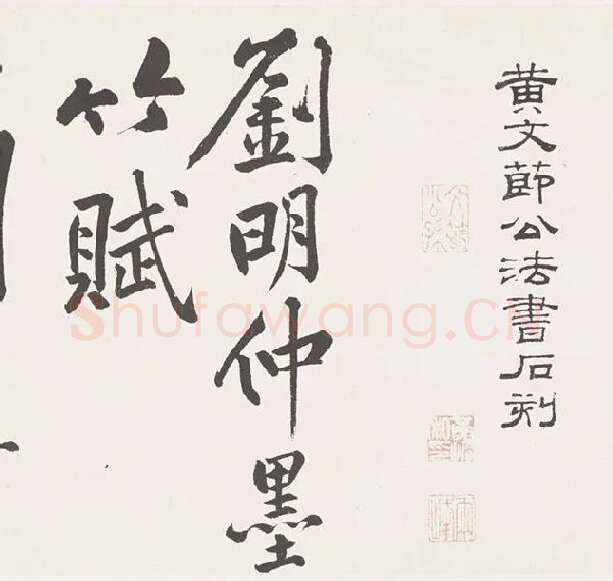 黄文節公法書石刻
劉明仲墨
竹賦
Shufawang.CN